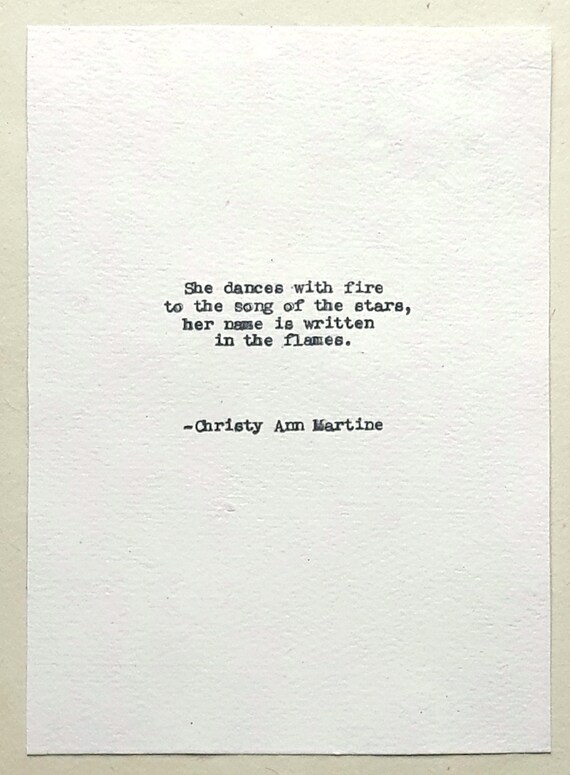 She dances with fire
to the song of the stars,
her name is written
in the flames.
-Christy Ann Martine